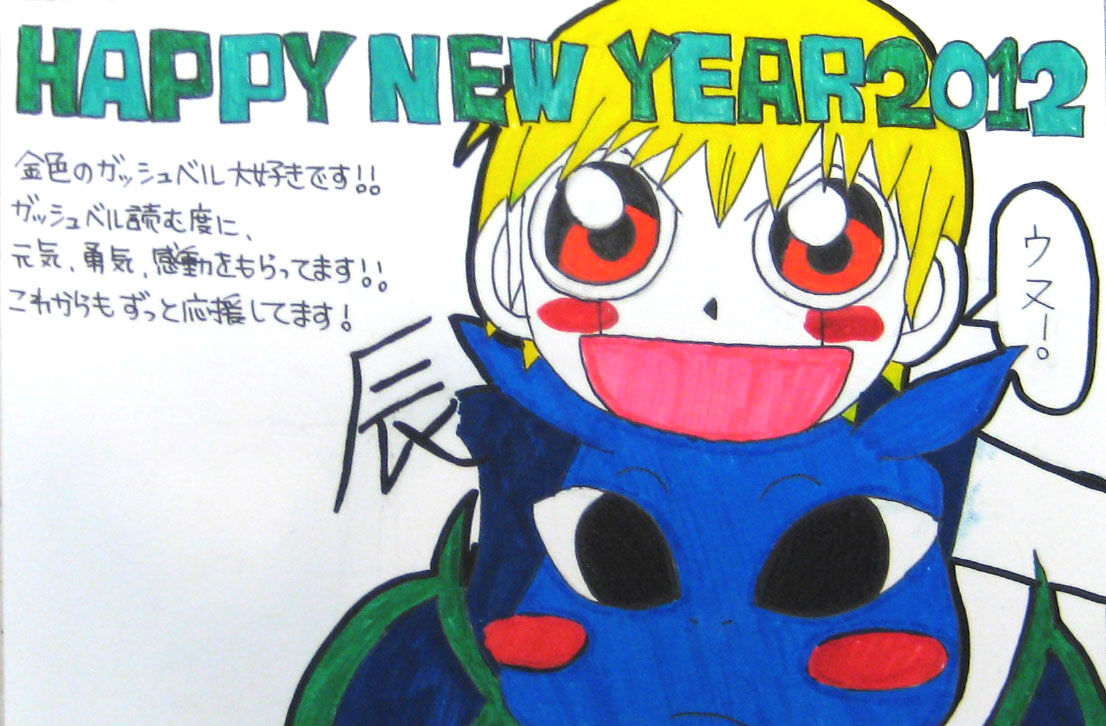 HAPPY NEW YEAR 2012
金色のガッシュベル大好きです!!
ガッシュベル読む度に、
元気、勇気、感動をもらってます!!
これからもずっと応援してます!
辰
ウヌー。